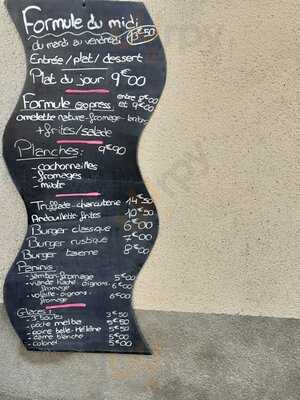 Formule du midi
du mardi au vendredi 13€50
Entrée/plat/dessert
Plat du jour 9€00
Formule express entre 8€00 et 9€00
omelette nature-fromage-
+frites/salade
Planches: 9€90
- cochonnailles
- fromages
- mixte
Truffade-charcuterie 14€50
Andouillette frites 10€50
Burger classique 6€00
Burger rustique 7€00
Burger taverne 8€00
Paninis
- jambon-fromage 5€00
- viande haché-oignons-fromage 6€00
- volaille-oignons-fromage 6€00
Glaces:
- 3 boules 3€50
- pêche melba 5€50
- poire belle-Hélène 5€50
- dame blanche 5€00
- colonel 5€00